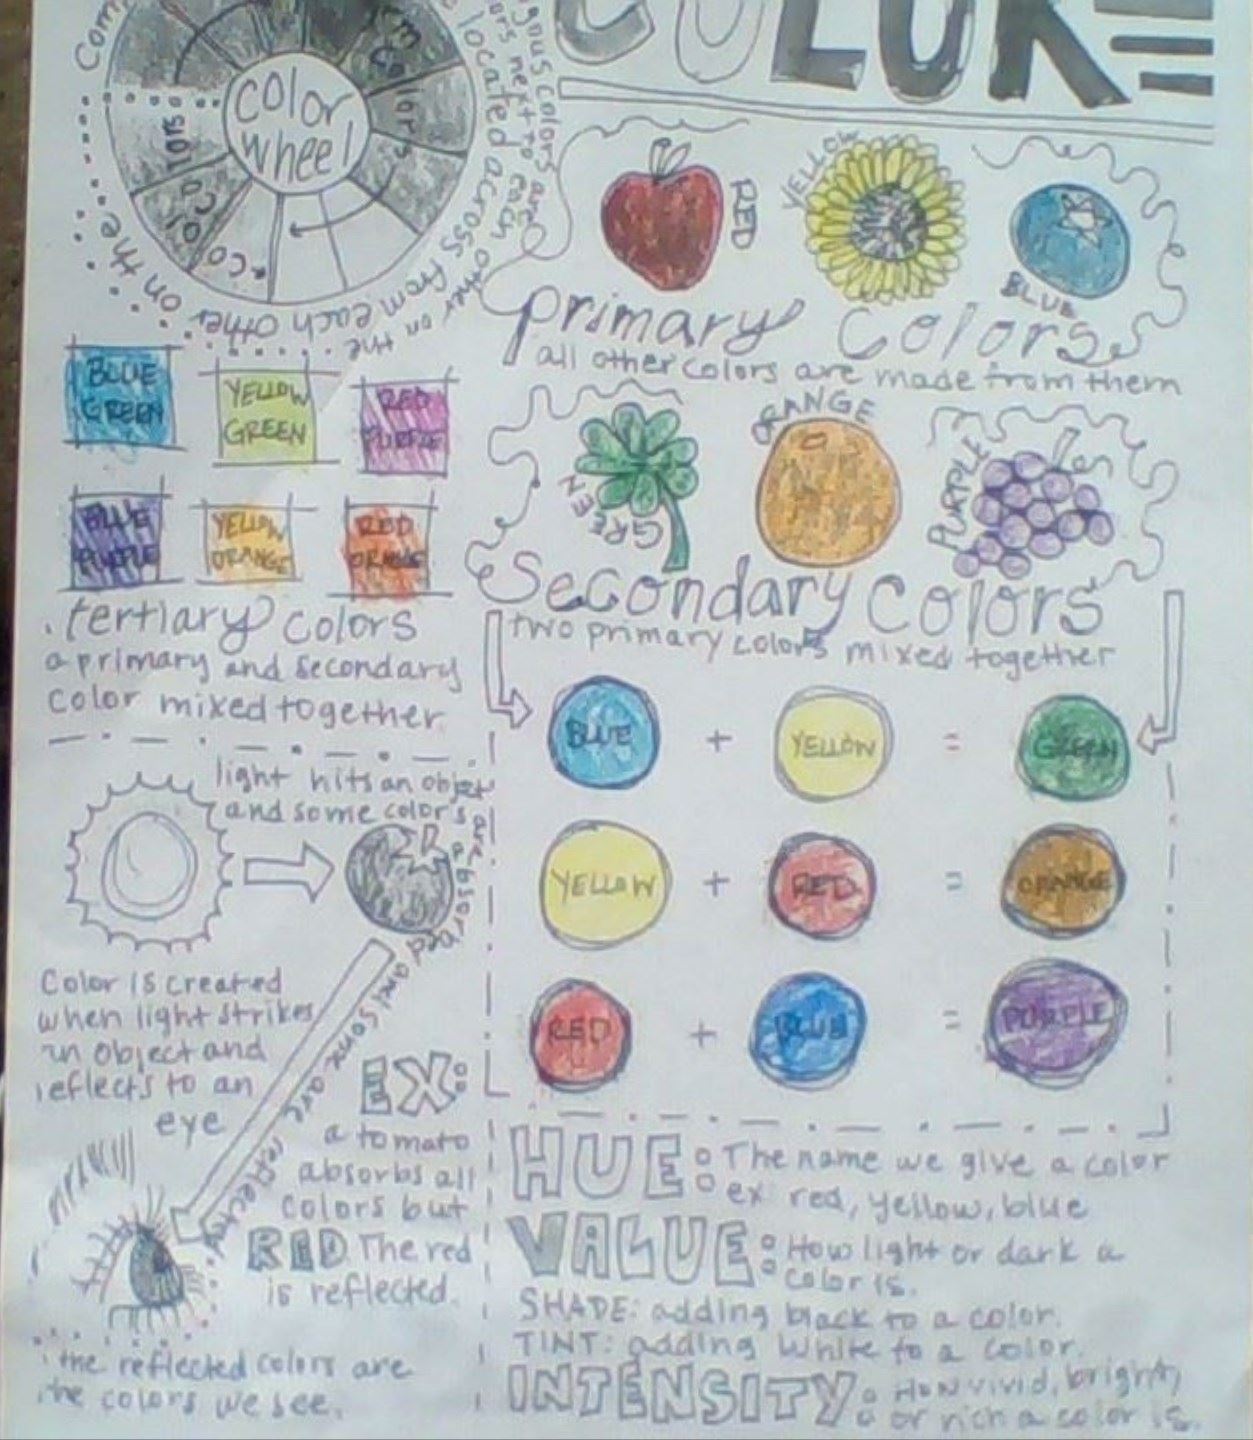 COLOR
color
wheel
Colors
located across from each other on the
colors next to each other on the
colors are
RED
YELLOW
BLUE
primary colors
all other colors are made from them
GREEN
ORANGE
PURPLE
Secondary colors
two primary colors mixed together
BLUE
GREEN
YELLOW
GREEN
RED
PURPLE
BLUE
PURPLE
YELLOW
ORANGE
RED
ORANGE
tertiary colors
a primary and secondary
color mixed together
BLUE + YELLOW = GREEN
YELLOW + RED = ORANGE
RED + BLUE = PURPLE
light hits an object
and some colors are absorbed and some are reflected
Color is created
when light strikes
an object and
reflects to an
eye
EX:
a tomato
absorbs all
colors but
RED The red
is reflected.
the reflected colors are
the colors we see.
HUE: The name we give a color
ex red, yellow, blue
VALUE: How light or dark a
color is.
SHADE: adding black to a color.
TINT: adding white to a color.
INTENSITY: How vivid, bright,
or rich a color is.